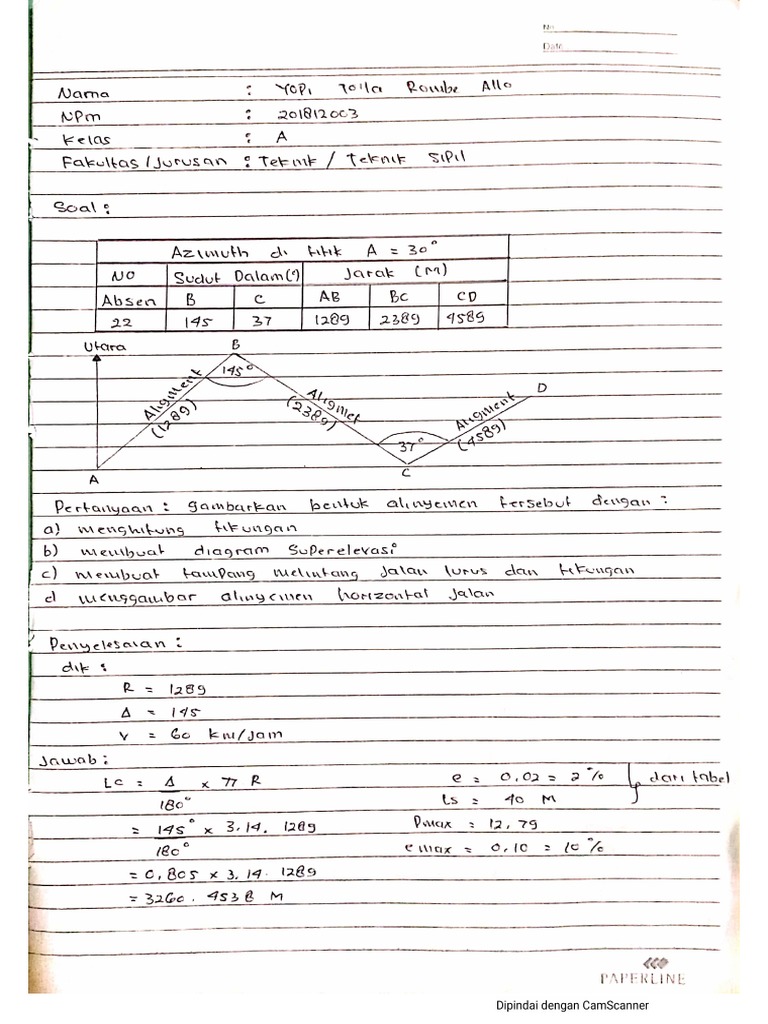 No
Date
Nama : Yopi Tolla Rombe Allo
NPm : 201812003
Kelas : A
Fakultas/Jurusan : Teknik / Teknik Sipil
Soal :
Azimuth di titik A = 30°
NO Sudut Dalam(°) Jarak (M)
Absen B C AB BC CD
22 145 37 1289 2389 4589
Utara
B
145°
Aligment
(1289)
Aligmet
(2389)
D
Aligment
(4589)
37°
A
C
Pertanyaan : gambarkan bentuk alinyemen tersebut dengan :
a) menghitung tikungan
b) membuat diagram superelevasi
c) membuat tampang melintang jalan lurus dan tikungan
d menggambar alinyemen horizontal jalan
Penyelesaian :
dik :
R = 1289
Δ = 145
V = 60 km/jam
Jawab :
Lc = Δ/180° x π R
e = 0,02 = 2% dari tabel
Ls = 40 M
= 145°/180° x 3,14. 1289
Dmax = 12,79
e max = 0,10 = 10%
= 0,805 x 3,14. 1289
= 3260. 4538 M
PAPERLINE
Dipindai dengan CamScanner